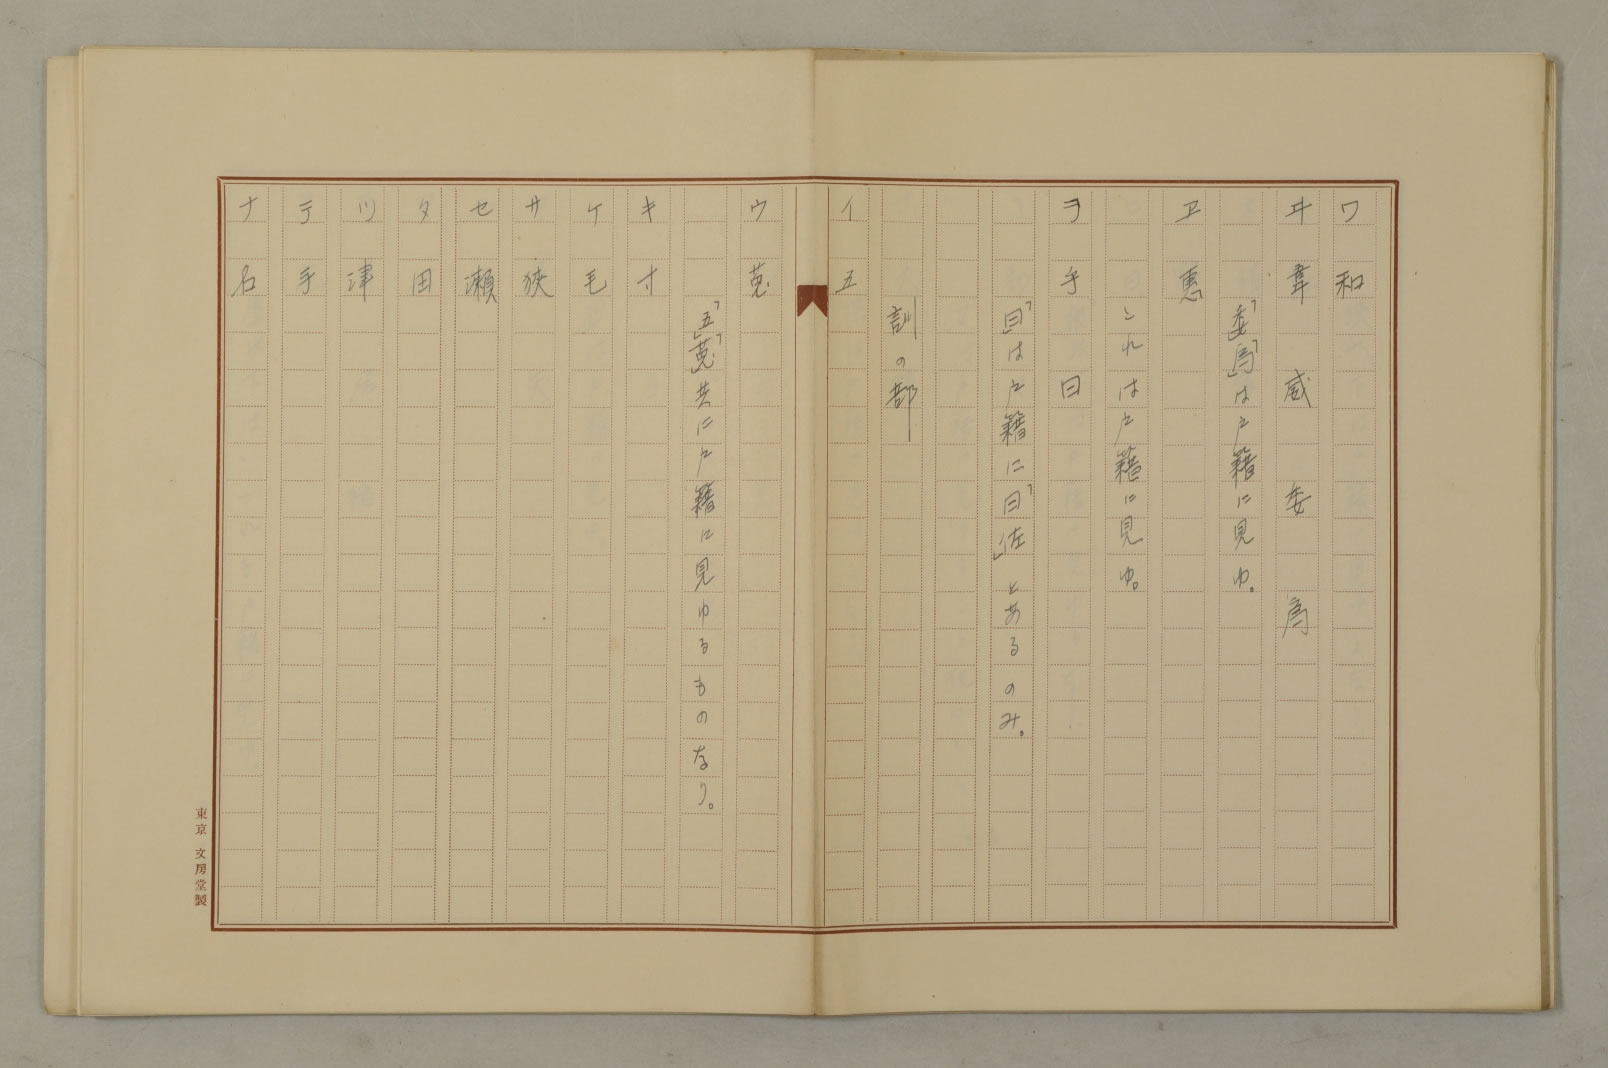 ワ 和
ヰ 韋 威 委 為
「委」「為」は戸籍に見ゆ。
ヱ 惠
これは戸籍に見ゆ。
ヲ 乎 曰
「曰」は戸籍に「曰佐」とあるのみ。
訓の部
イ 五
ウ 菟
「五」「菟」共に戸籍に見ゆるものなり。
キ 寸
ケ 毛
サ 狹
セ 瀬
タ 田
ツ 津
テ 手
ナ 名
東京 文房堂製